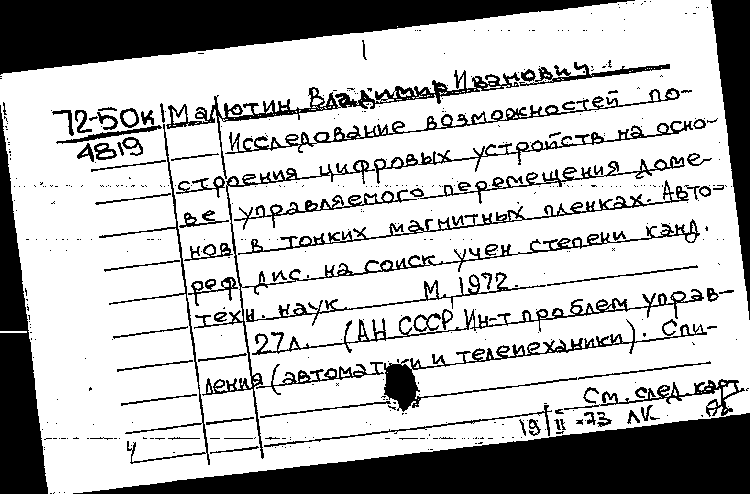 1
72-50к Малютин, Владимир Иванович
4819 Исследование возможностей по-
строения цифровых устройств на осно-
ве управляемого перемещения доме-
нов в тонких магнитных пленках. Авто-
реф. дис. на соиск. учен. степени канд.
техн. наук. М., 1972.
27л. (АН СССР. Ин-т проблем управ-
ления (автоматики и телемеханики). Спи-
См. след. карт.
19/II-73 ЛК
Ч